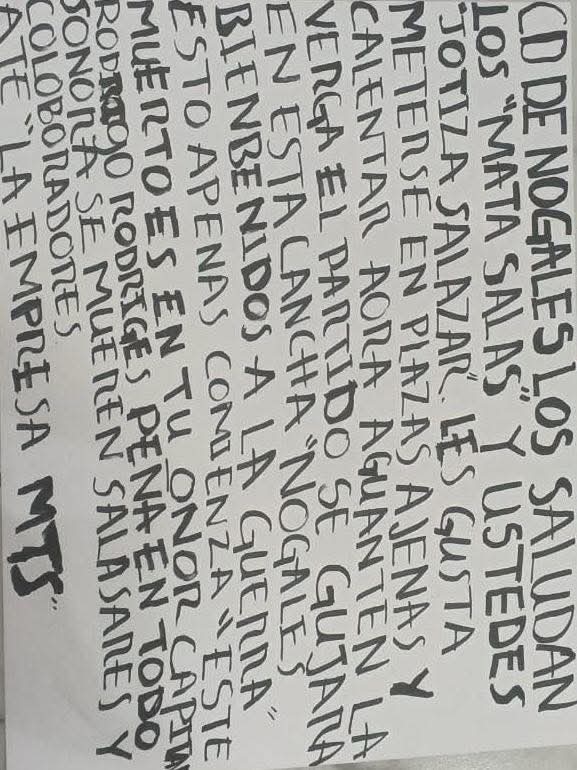 CD DE NOGALES LOS SALUDAN
LOS "MATA SALAS" Y USTEDES
"JOTIZA SALAZAR". LES GUSTA
METERSE EN PLAZAS AJENAS Y
CALENTAR AORA AGUANTEN LA
VERGA EL PARTIDO SE GUJARA
EN ESTA CANCHA "NOGALES
BIENBENIDOS A LA GUERRA"
ESTO APENAS COMIENZA" ESTE
MUERTO ES EN TU ONOR CAPITAN
RODRIGES PEÑA EN TODO
SONORA SE MUEREN SALASARES Y
COLOBORADORES
ATE "LA EMPRESA MTS"